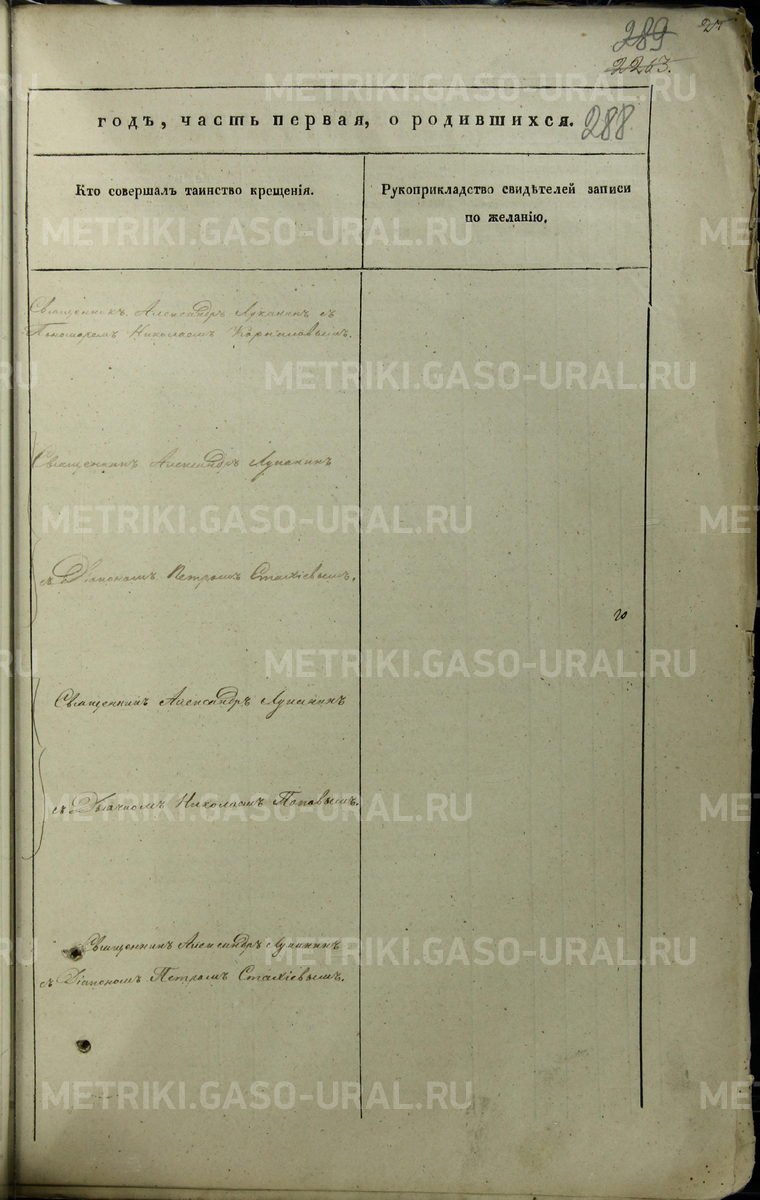 289
2263.
288
годъ, часть первая, о родившихся.
Кто совершалъ таинство крещенія.
Рукоприкладство свидѣтелей записи
по желанію.
Священникъ Александръ Луканинъ съ
Пономаремъ Николаемъ Корниловымъ.
Священникъ Александръ Луканинъ
съ Діакономъ Петромъ Стахіевымъ.
Священникъ Александръ Луканинъ
съ Дьячкомъ Николаемъ Поповымъ.
Священникъ Александръ Луканинъ
съ Діакономъ Петромъ Стахіевымъ.
METRIKI.GASO-URAL.RU